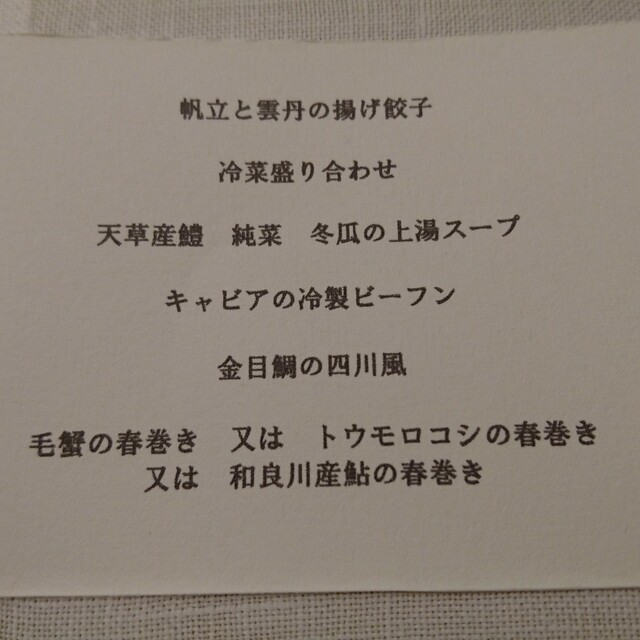 帆立と雲丹の揚げ餃子
冷菜盛り合わせ
天草産鱧　純菜　冬瓜の上湯スープ
キャビアの冷製ビーフン
金目鯛の四川風
毛蟹の春巻き　又は　トウモロコシの春巻き
又は　和良川産鮎の春巻き